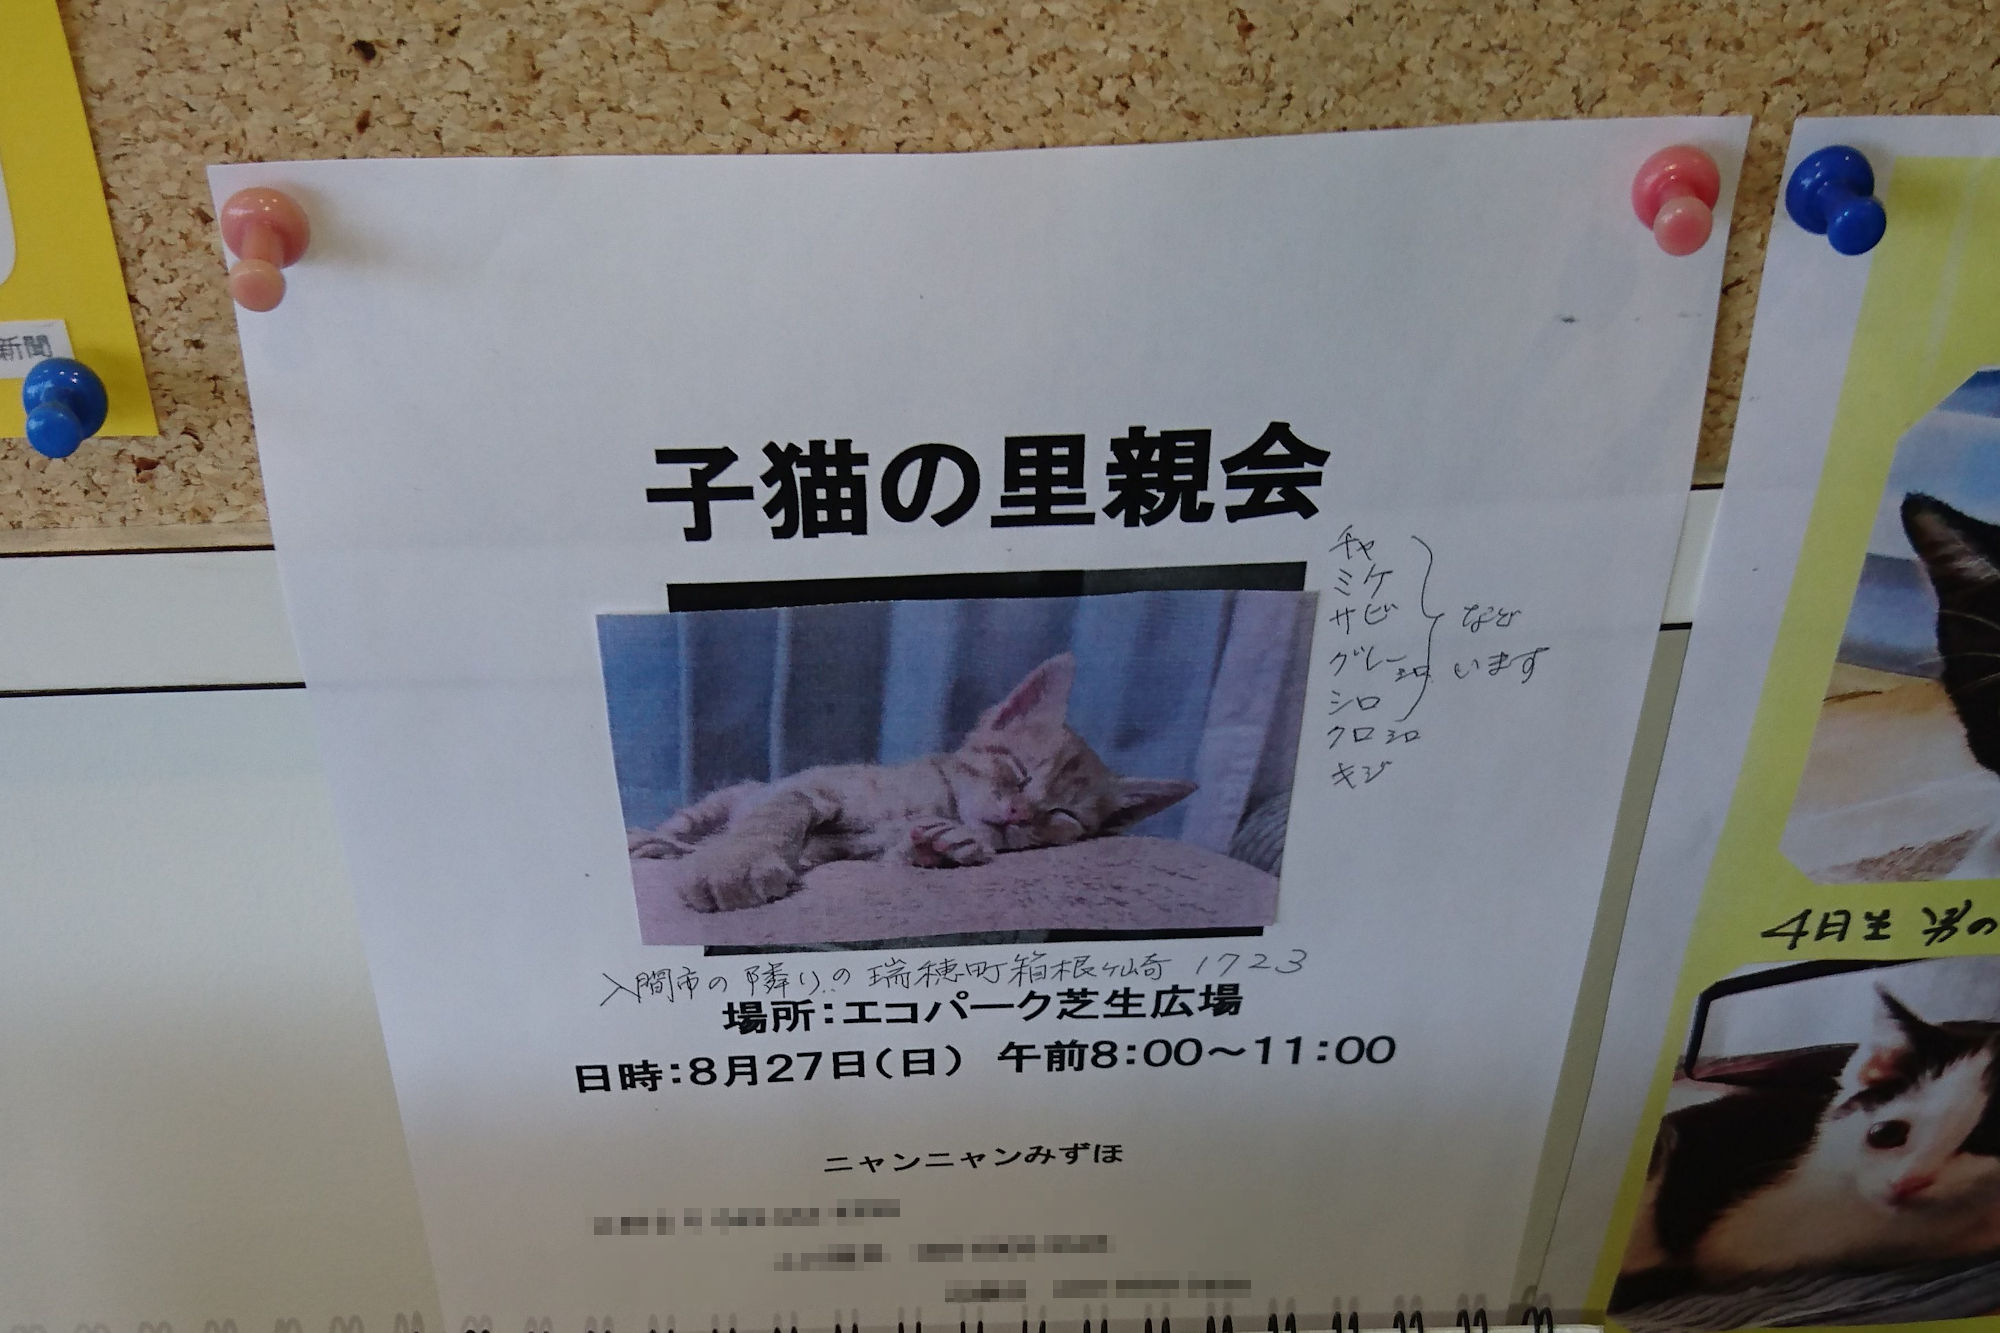 新聞
子猫の里親会
チャ
ミケ
サビ
グレー シロ
シロ
クロ シロ
キジ
など
います
入間市の隣りの瑞穂町箱根ヶ崎1723
場所:エコパーク芝生広場
日時:8月27日(日) 午前8:00～11:00
ニャンニャンみずほ
4日生 男の